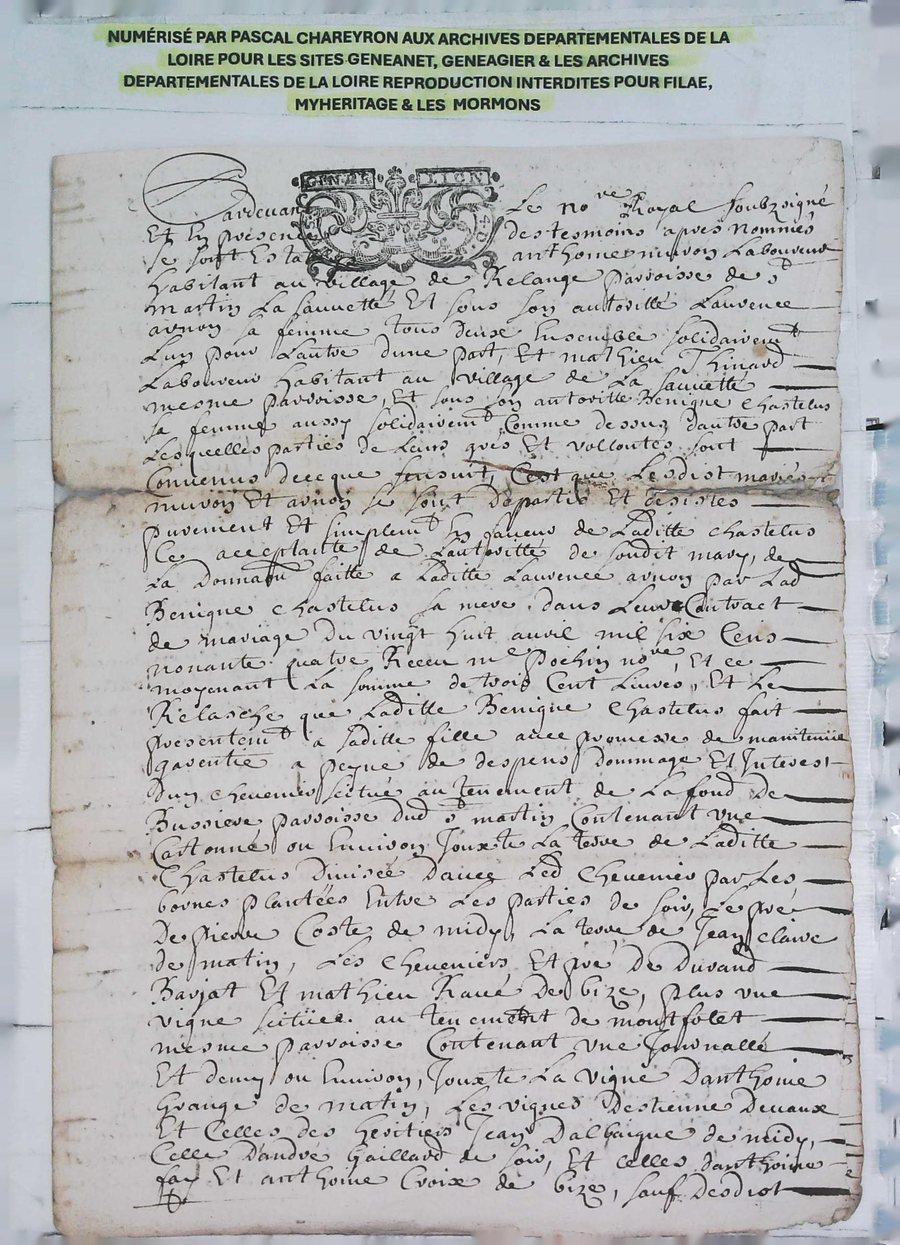 NUMÉRISÉ PAR PASCAL CHAREYRON AUX ARCHIVES DEPARTEMENTALES DE LA
LOIRE POUR LES SITES GENEANET, GENEAGIER & LES ARCHIVES
DEPARTEMENTALES DE LA LOIRE REPRODUCTION INTERDITES POUR FILAE,
MYHERITAGE & LES MORMONS
GENER LION
Pardevant Le no.re Royal soubzsigné
Et En presence des tesmoins apres nommés
se sont Establis anth.e muron Laboureur
habitant au village de Relange parroisse de S.t
martin La sauveté Et sous son authorité Laurence
arnon sa femme tous deux Ensemble solidairem.t
Lun pour Lautre dune part, Et mathieu Thinard
Laboureur habitant au village de La sauvette
mesme parroisse, Et sous son autorité Benigne Chastelus
sa femme aussy solidairem.t Comme dessus dautre part
Lesquelles parties de Leurs grés Et vollontés sont
Convenus dece que sensuit, C'est que Lesdist mariés
muron Et arnon se sont departis Et desistes
purement Et simplem.t En faveur de Laditte Chastelus
Ce acceptante de Lautorité de sondit mary, de
La Donna.on faitte a Laditte Laurence arnon par Lad
Benigne Chastelus sa mere, dans Leur Contract
de mariage du vingt huit auril mil six Cens
nonante quatre Receu m.e pochin no.re, Et ce
moyenant La somme de trois Cent Liures, Et Le
Relasche que Laditte Benigne Chastelus fait
presentem.t a saditte fille avec promesse de maintenüe
garentie a peyne de despens dommage Et Interest
dun Cheuenier scitué au tenement de La fond De
Bussiere parroisse dud S.t martin Contenant vne
Cartonné ou Enuiron Jouxte La terre de Laditte
Chastelus Diuisée Dauec Led Cheuenier par Les
bornes plantées Entre Les parties de soir, Le pré
De pierre Coste de midy, La terre de Jean Claire
de matin, Les Cheueniers Et pré De Durand
Barjat Et mathieu De bize, plus vne
vigne scitüée au tenement de montfolet
mesme parroisse Contenant vne Journallé
Et demy ou Enuiron, Jouxte La vigne Danthoine
Grange de matin, Les vignes Destienne Deuaux
Et Celles des heritiers Jean Dalbaigue de midy,
Celle Dandre Gaillard de soir, Et Celles danthoine
fay Et anthoine Croix de bize, sauf Desdist